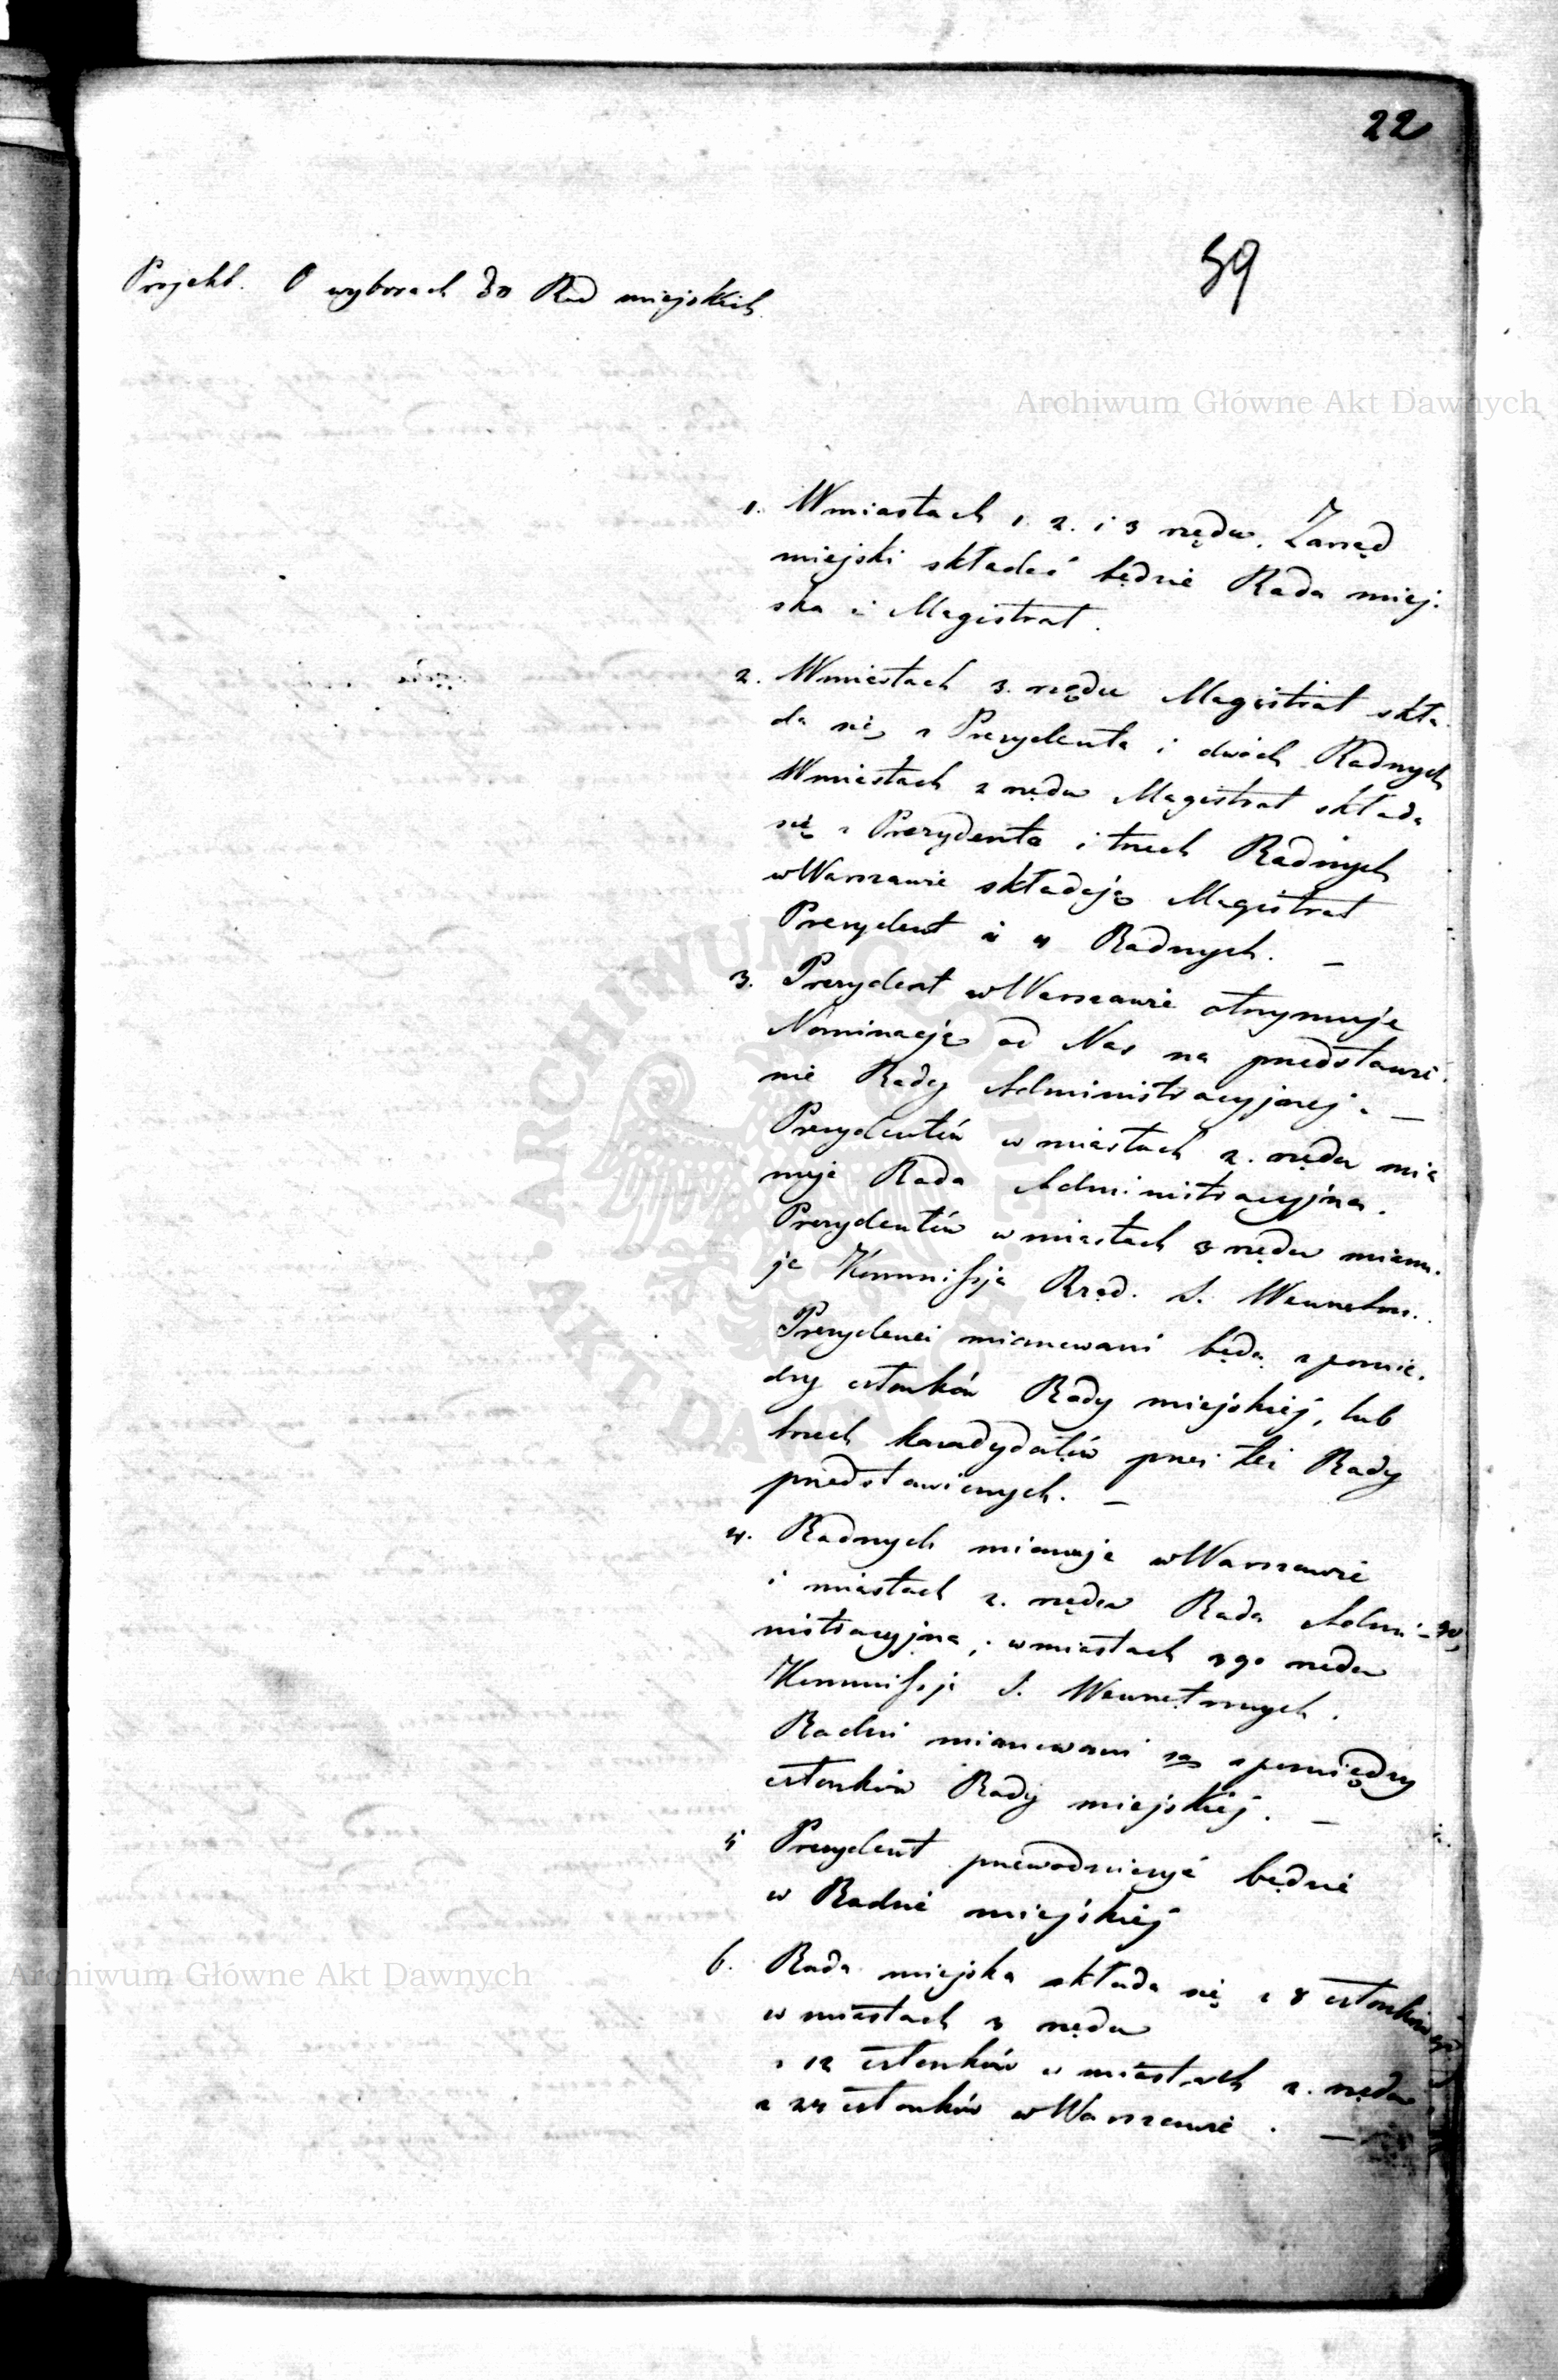 22
59
Projekt. O wyborach do Rad miejskich.
Archiwum Główne Akt Dawnych
1. W miastach 1. 2. i 3 rzędu. Zarząd
miejski składać będzie Rada miej-
ska i Magistrat.
2. W miastach 3. rzędu Magistrat skła-
da się z Prezydenta i dwóch Radnych
W miastach 2 rzędu Magistrat składa
się z Prezydenta i trzech Radnych
w Warszawie składają Magistrat
Prezydent i 4 Radnych. —
3. Prezydent w Warszawie otrzymuje
Nominacją od Nas na przedstawie-
nie Rady Administracyjnej. —
Prezydentów w miastach 2. rzędu mia
nuje Rada Administracyjna.
Prezydentów w miastach 3 rzędu mianu-
je Kommissja Rząd. S. Wewnetrz.
Prezydenci mianowani będą z pomię-
dzy członków Rady miejskiéj, lub
trzech kandydatów przez tęż Radę
przedstawionych. —
4. Radnych mianuje w Warszawie
i miastach 2. rzędu Rada Admi-
nistracyjna; w miastach 3go rzędu
Kommissja S. Wewnętrznych.
Radni mianowani są z pomiędzy
członków Rady miejskiéj. —
5 Prezydent przewodniczyć będzie
w Radzie miejskiéj
6. Rada miejska składa się z 8 członków
w miastach 3 rzędu
z 12 członków w miastach 2. rzędu
z 24 członków w Warszawie. —
Archiwum Główne Akt Dawnych
ARCHIWUM GŁÓWNE
AKT DAWNYCH